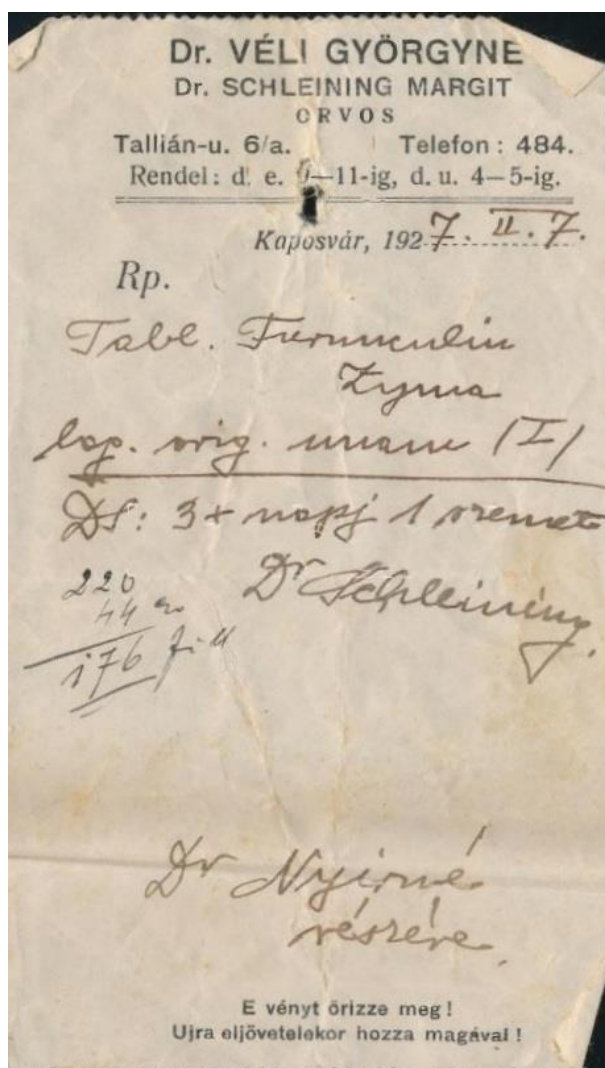 Dr. VÉLI GYÖRGYNE
Dr. SCHLEINING MARGIT
ORVOS
Tallián-u. 6/a. Telefon: 484.
Rendel: d. e. 9—11-ig, d. u. 4—5-ig.
Kaposvár, 1927. II. 7.
Rp.
Tabl. Furunculin
Zyma
lag. orig. unam (I)
DS: 3x napj 1 szemet
Dr Schleining.
220
44
176 fill
Dr Nyirné
részére.
E vényt őrizze meg!
Ujra eljövetelekor hozza magával!